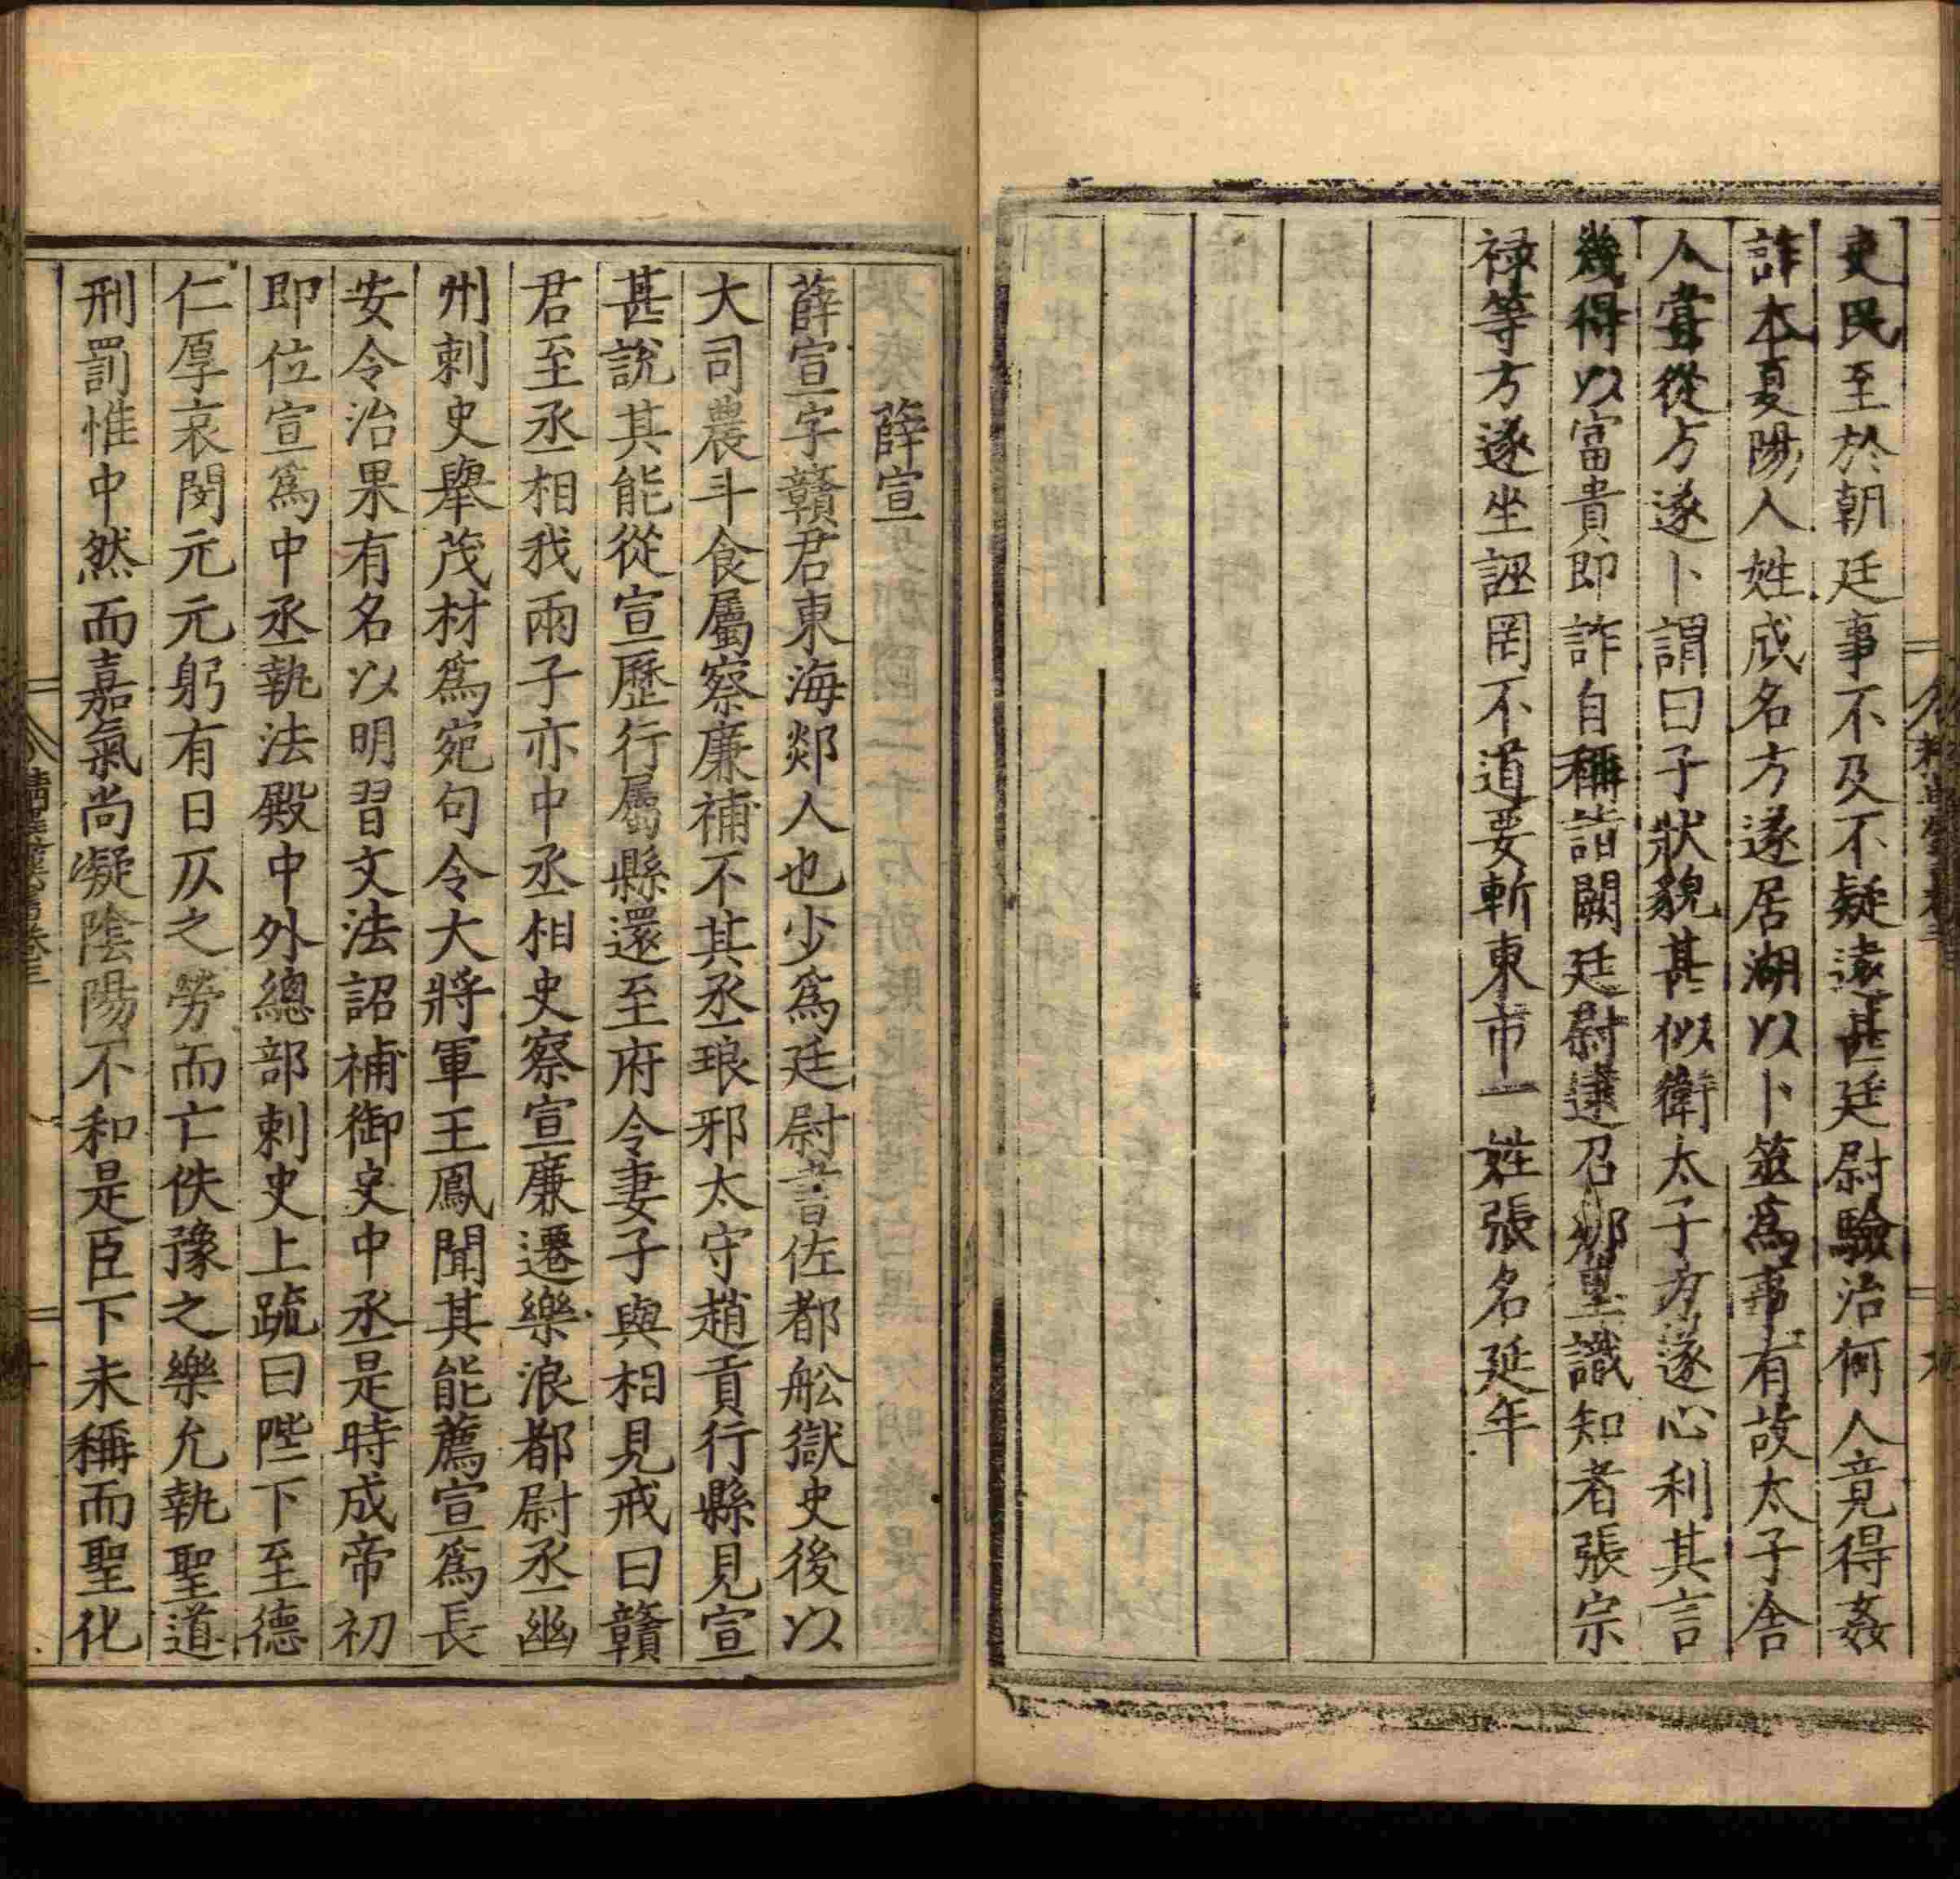 吏民至於朝廷事不及不疑遠甚廷尉驗治何人竟得姦
詐本夏陽人姓成名方遂居湖以卜筮爲事有故太子舍
人嘗從方遂卜謂曰子狀貌甚似衛太子方遂心利其言
幾得以富貴即詐自稱詣闕廷尉逮召鄉里識知者張宗
祿等方遂坐誣罔不道要斬東市一姓張名延年
薛宣
薛宣字贛君東海郯人也少爲廷尉書佐都船獄史後以
大司農斗食屬察廉補不其丞琅邪太守趙貢行縣見宣
甚說其能從宣歷行屬縣還至府令妻子與相見戒曰贛
君至丞相我兩子亦中丞相史察宣廉遷樂浪都尉丞幽
州刺史舉茂材爲宛句令大將軍王鳳聞其能薦宣爲長
安令治果有名以明習文法詔補御史中丞是時成帝初
即位宣爲中丞執法殿中外總部刺史上疏曰陛下至德
仁厚哀閔元元躬有日仄之勞而亡佚豫之樂允執聖道
刑罰惟中然而嘉氣尚凝陰陽不和是臣下未稱而聖化